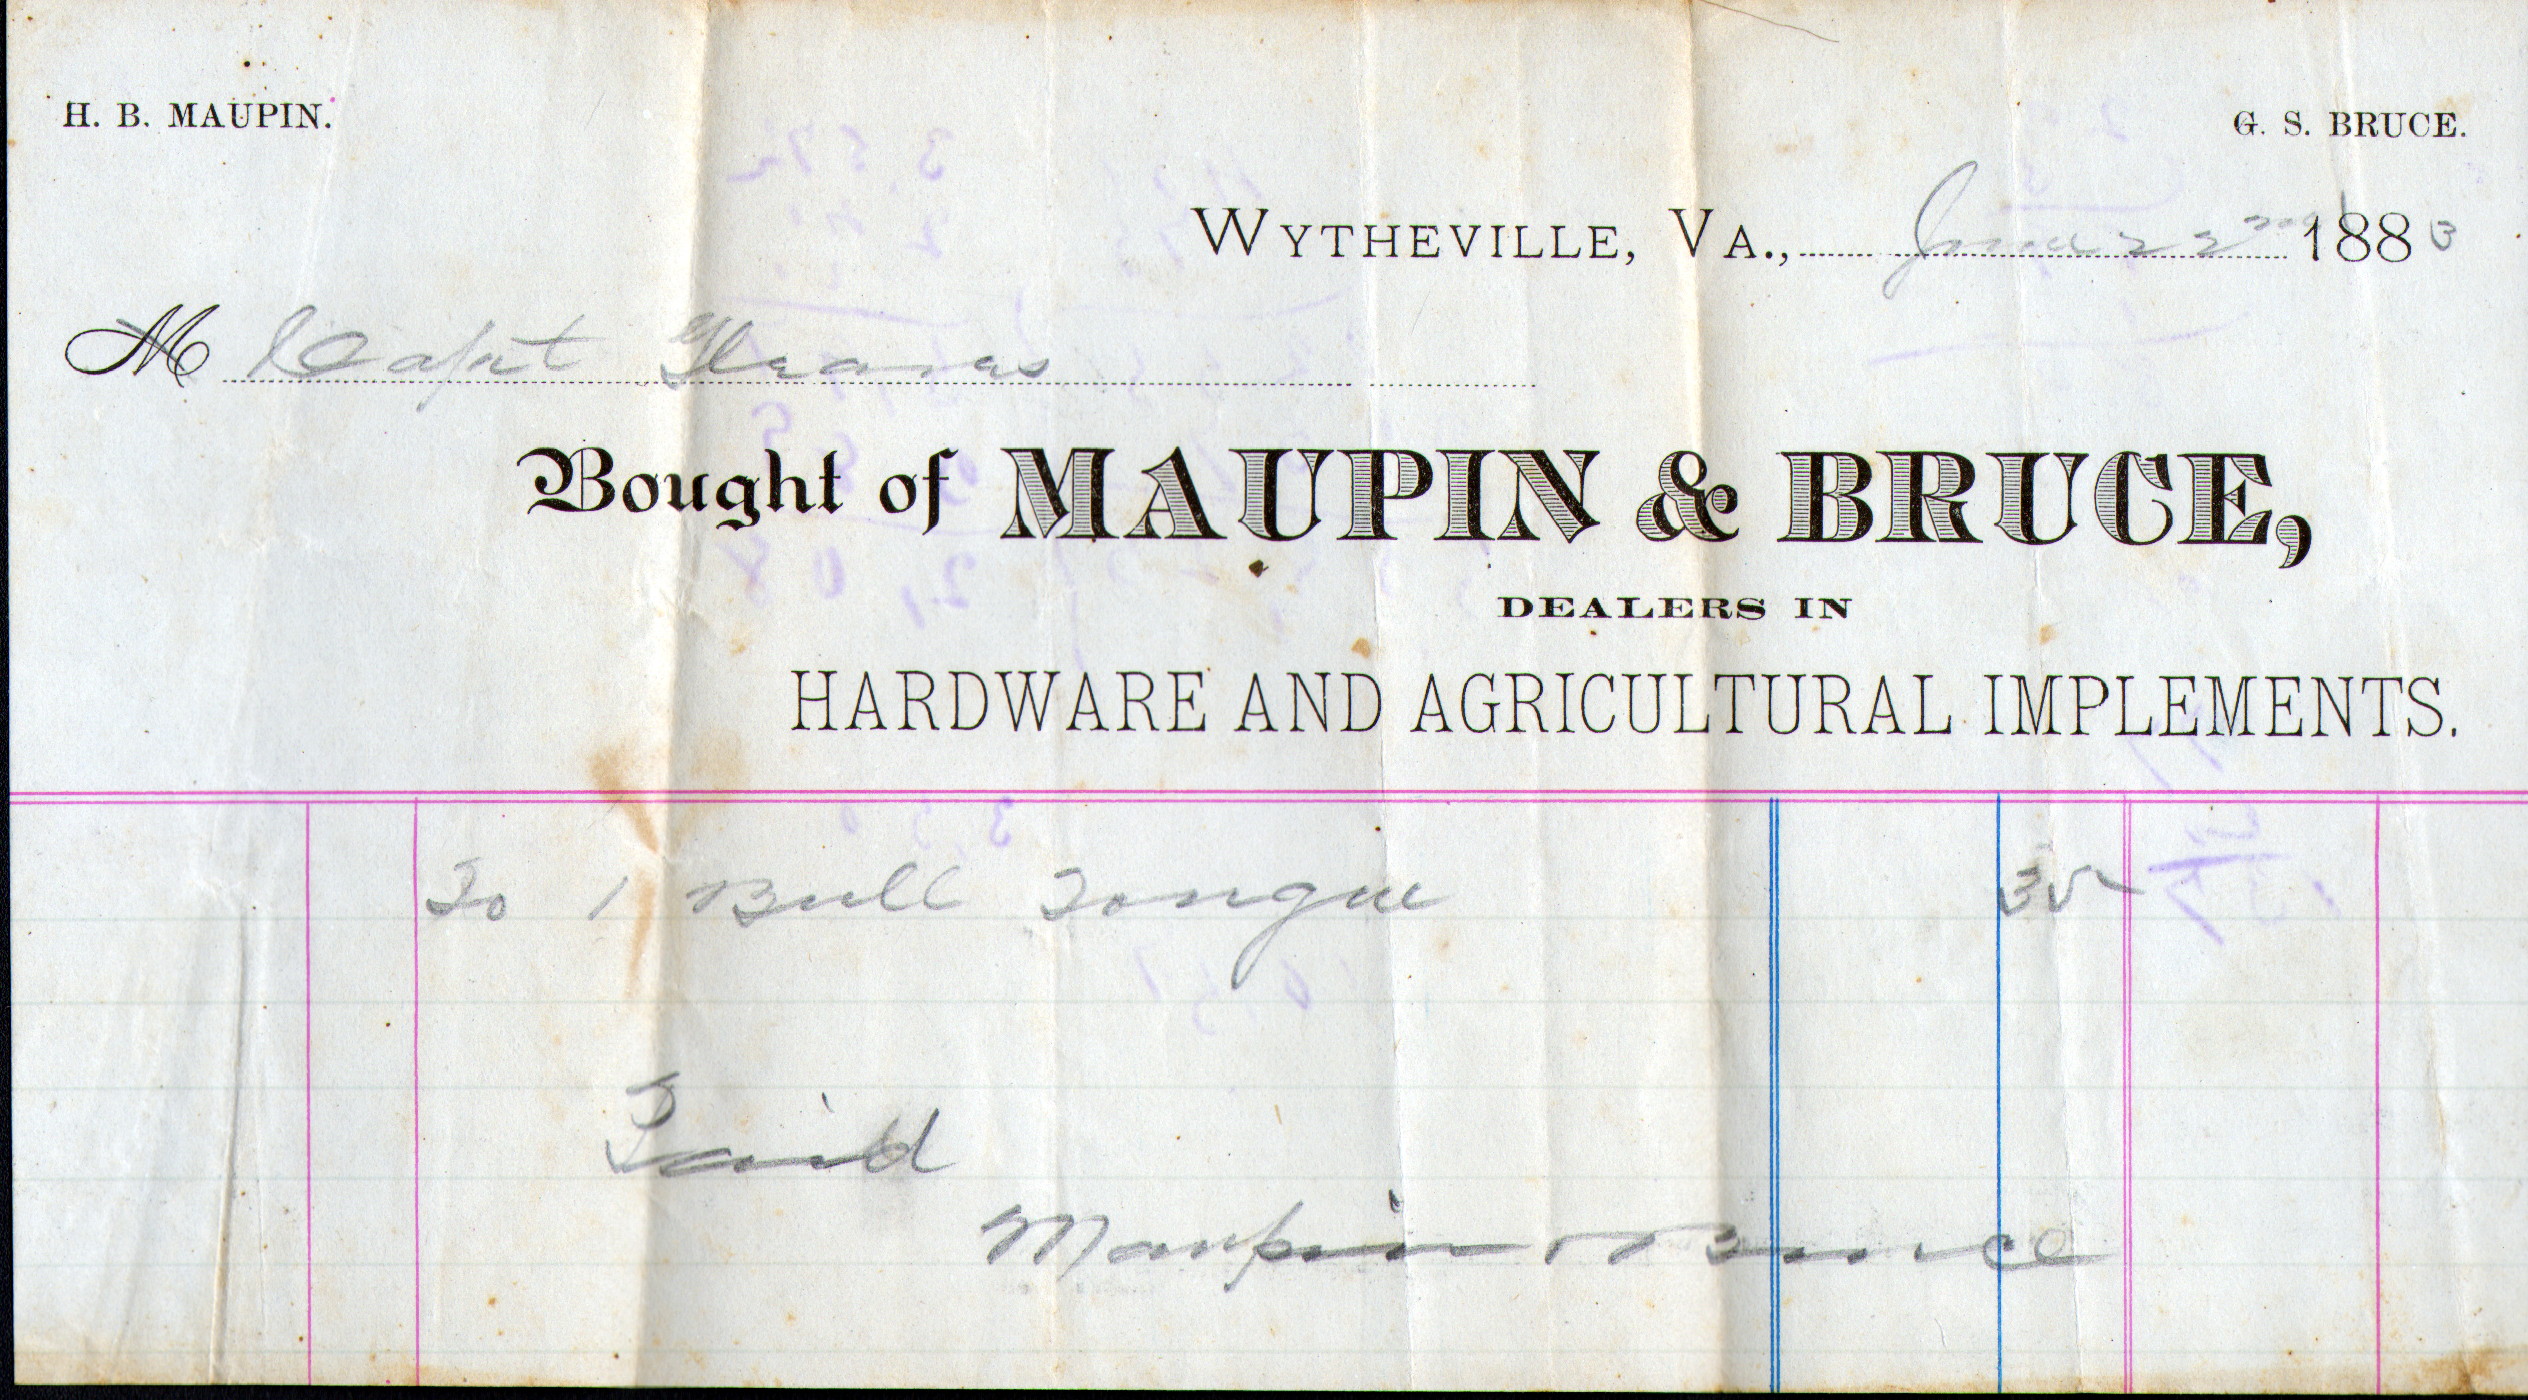 H. B. MAUPIN.
G. S. BRUCE.
WYTHEVILLE, VA., June 22nd 1883
M Capt Gleaves
Bought of MAUPIN & BRUCE,
DEALERS IN
HARDWARE AND AGRICULTURAL IMPLEMENTS.
To 1 Bull Tongue 35
Paid
Maupin & Bruce